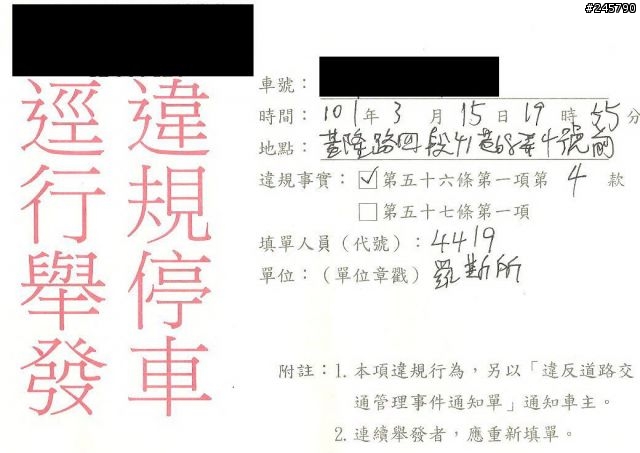 #245790
違規停車
逕行舉發
車號：
時間：101年3月15日19時55分
地點：基隆路四段41巷68弄4號前
違規事實：☑第五十六條第一項第4款
☐第五十七條第一項
填單人員（代號）：4419
單位：（單位章戳）羅斯所
附註：1. 本項違規行為，另以「違反道路交
通管理事件通知單」通知車主。
2. 連續舉發者，應重新填單。